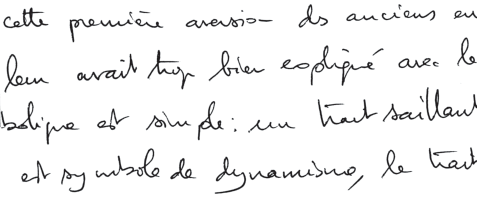 cette première aversion des anciens en
leur avait trop bien expliqué avec le
bolique est simple : un trait saillant
est symbole de dynamisme, le trait